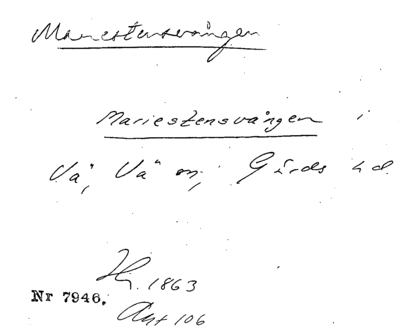 Mariestensvången
Mariestensvången i
Vä, Vä sn, Gärds hd.
Hj. 1863
Nr 7946.
Ant 106